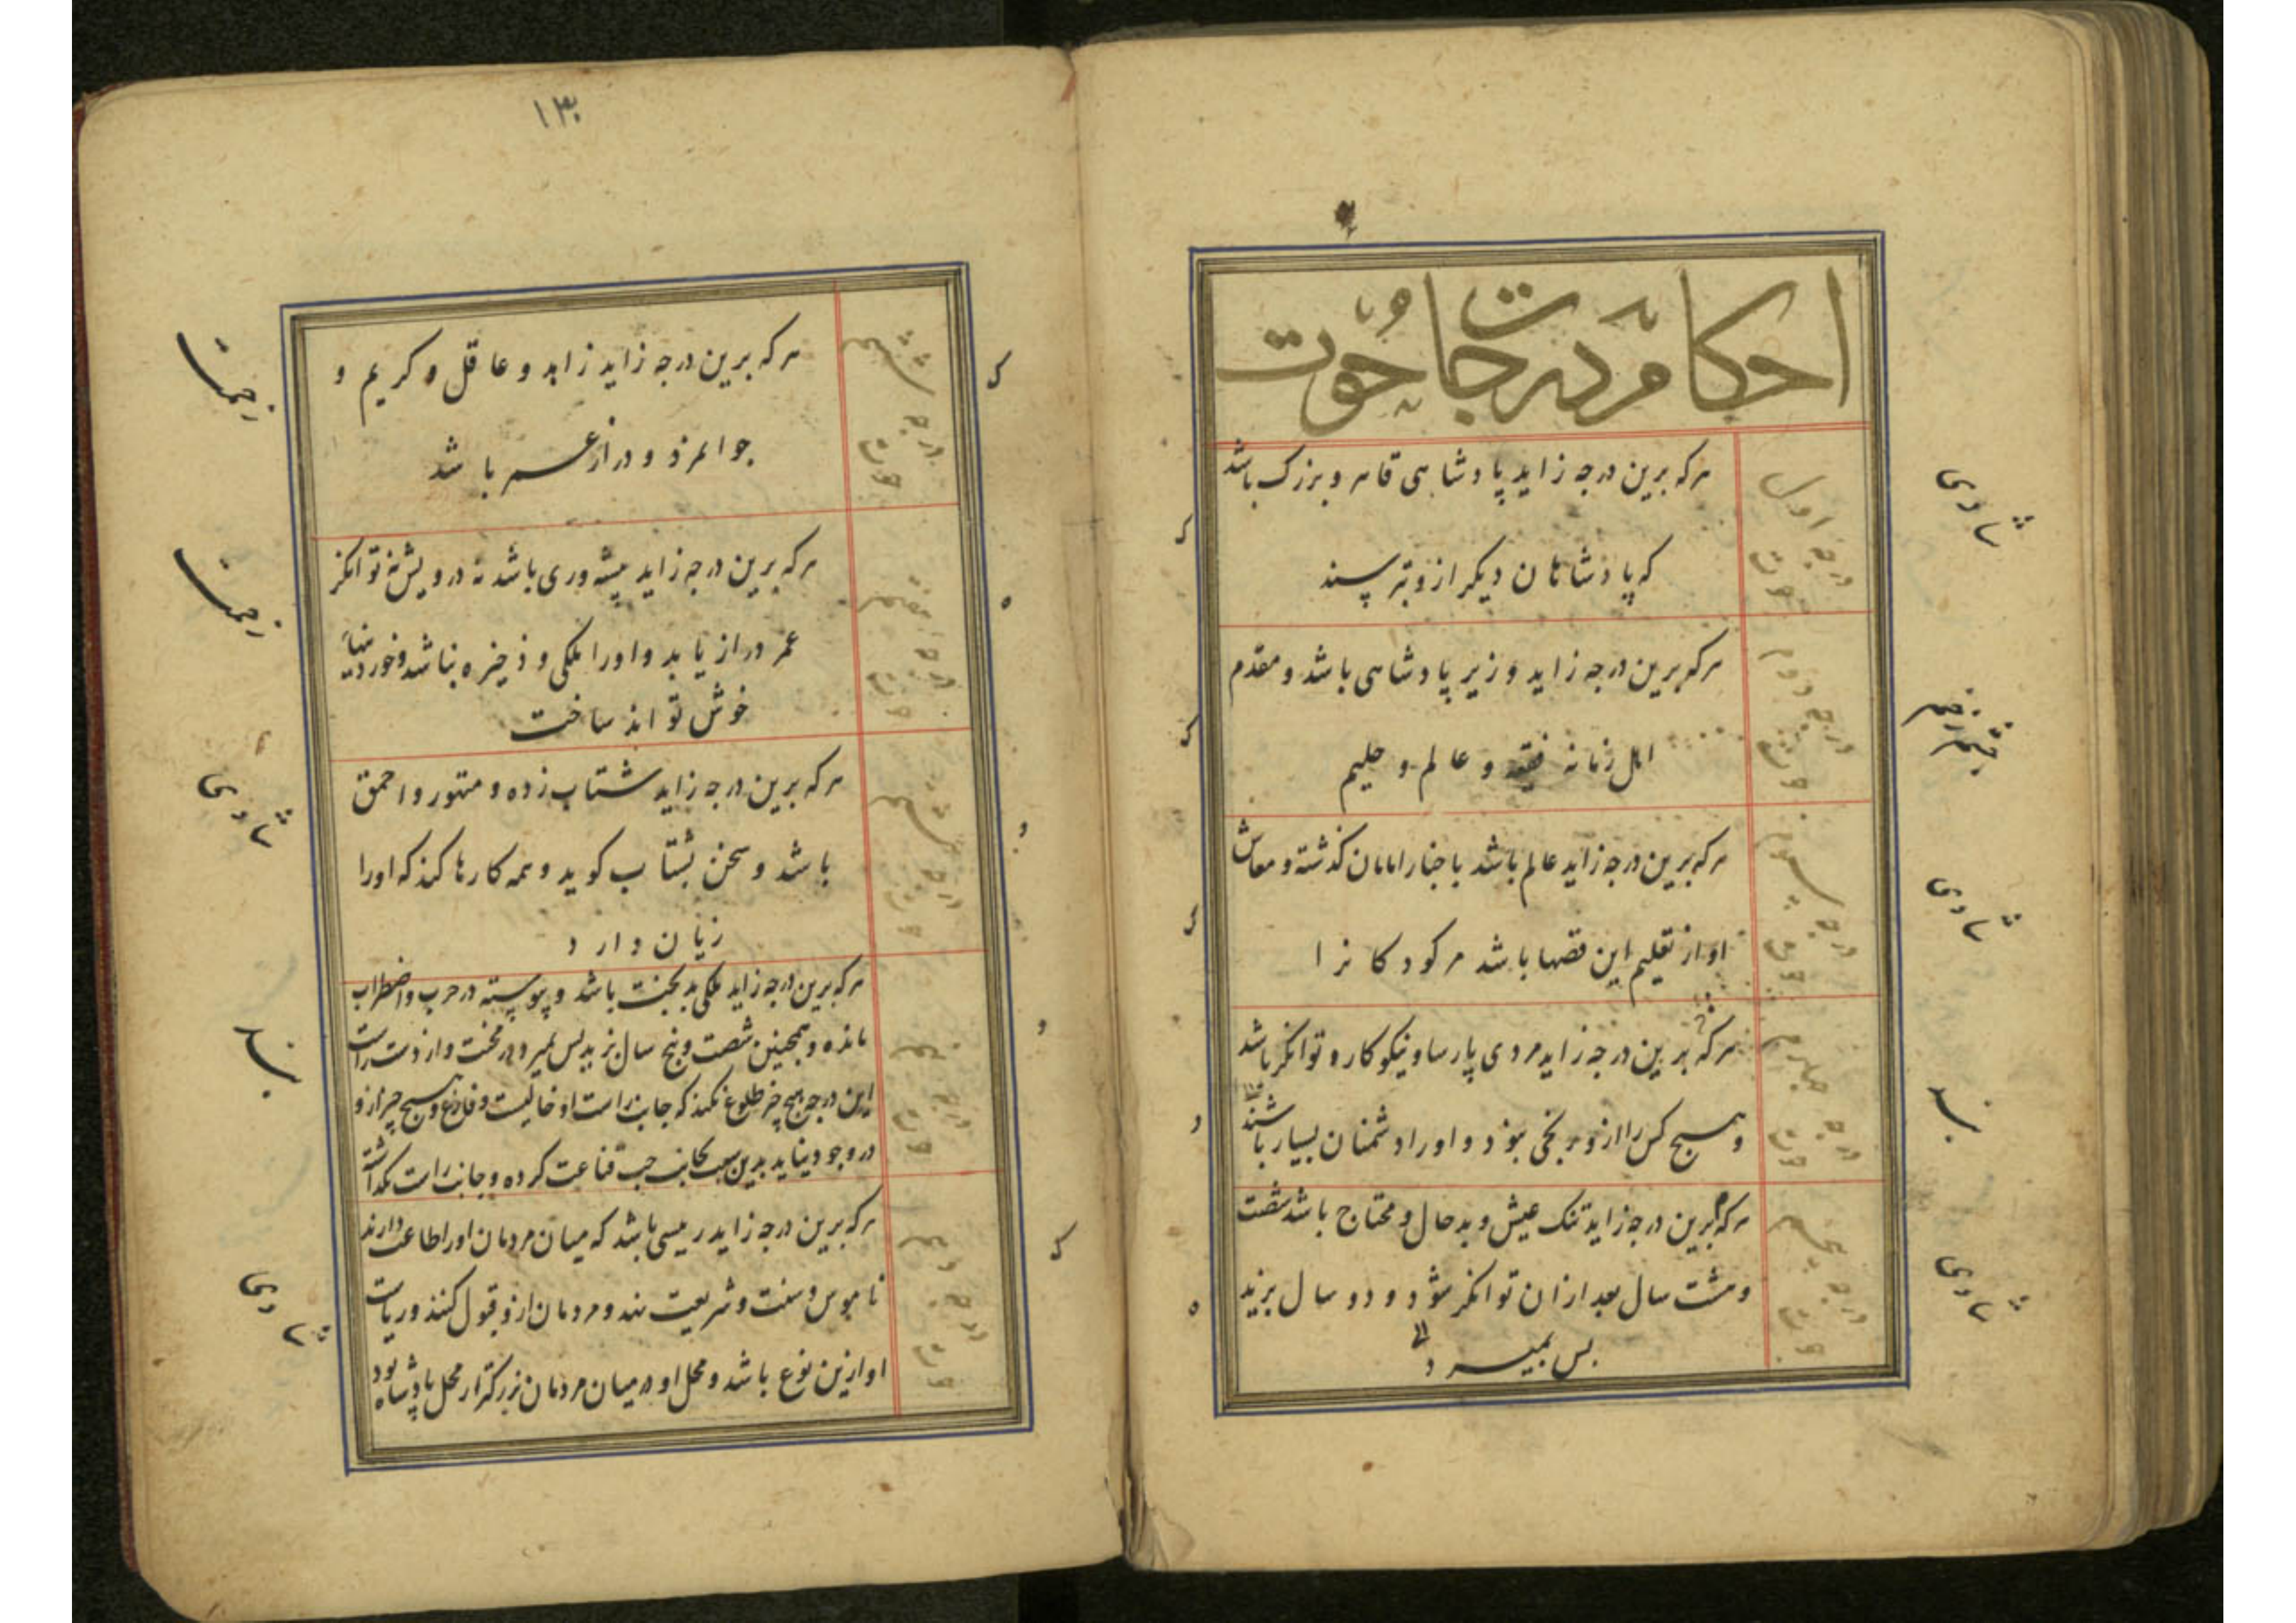 احکام درجات حوت
هرکه برین درجه زاید پادشاهی قاهر و بزرک باشد
درجه اول
حوت
شادی
که پادشاهان دیکر ازو بترسند
هرکه برین درجه زاید وزیر پادشاهی باشد و مقدم
درجه دوم
حوت
چشم زخم
اهل زمانه فقیه و عالم و حلیم
هرکه برین درجه زاید عالم باشد باخبار امامان کذشته و معاش
درجه سوم
حوت
شادی
او از تعلیم این قصها باشد مر کودکانرا
هرکه برین درجه زاید مردی پارسا و نیکوکار و توانکر باشد
درجه چهارم
حوت
وهیچ کس را ازو برنجی نبوذ و او را دشمنان بسیار باشند
هرکه برین درجه زاید تنک عیش و بدحال و محتاج باشد شصت
درجه پنجم
حوت
شادی
وهشت سال بعد ازان توانکر شود و دو سال بزید
بس بمیرد
۱۳۰
هرکه برین درجه زاید زاهد و عاقل و کریم و
درجه ششم
حوت
جوانمرذ و درازعمر باشد
هرکه برین درجه زاید پیشه‌وری باشد نه درویش نه توانکر
درجه هفتم
حوت
عمر دراز یابد و او را ملکی و ذخیره نباشد وخوردنیها
خوش تواند ساخت
هرکه برین درجه زاید شتاب زده و متهور و احمق
درجه هشتم
حوت
شادی
باشد و سخن بشتاب کوید و همه کارها کند که او را
زیان دارد
هرکه برین درجه زاید ملکی بدبخت باشد و پیوسته در حرب و اضطراب
درجه نهم
حوت
مانده و همچنین شصت و پنج سال بزید بس بمیرد در محنت و از دست راست
این درجه هیچ چیز طلوع نکند که جانب راست او خالیست و فارغ وهیچ چیز ازو
در وجود نیاید بدین سبب بجانب چپ قناعت کرده و جانب راست بکذاشته
هرکه برین درجه زاید رییسی باشد که میان مردمان او را طاعت دارند
درجه دهم
حوت
شادی
ناموس و سنت و شریعت نهد و مردمان ازو قبول کنند و ریاست
او ازین نوع باشد و محل او در میان مردمان بزرکتر از محل پادشاه بود